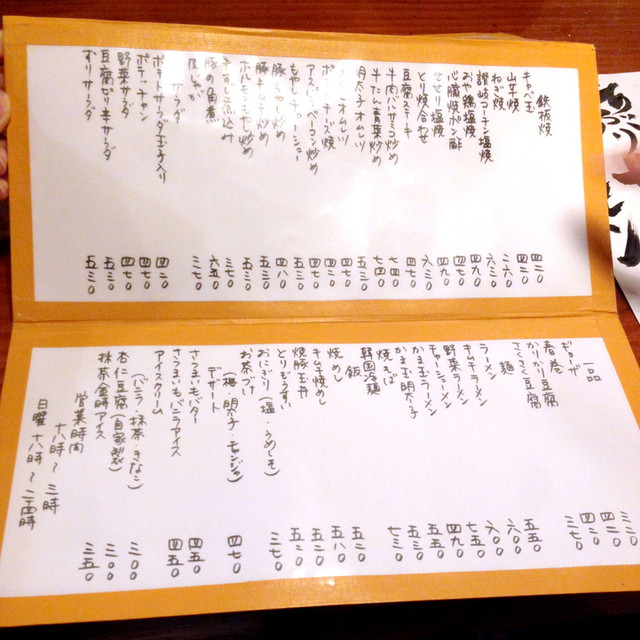 鉄板焼
キャベ玉
山芋焼
ねぎ焼
讃岐コーチン塩焼
おや鶏塩焼
心臓焼ポン酢
せせり塩焼
とり焼合せ
豆腐ステーキ
牛肉ハラミ炒め
牛たん青菜炒め
明太子オムレツ
オムレツ
ポテトチーズ焼
アスパラベーコン炒め
もやしチャーシュー
豚キムチ炒め
ホルモンもやし炒め
豚の角煮
サラダ
ポテトサラダ玉子入り
ポテッチャン
野菜サラダ
豆腐ぜりーサラダ
ずりサラダ
四二〇
四二〇
三六〇
六三〇
四九〇
四七〇
四九〇
六三〇
四七〇
七四〇
七四〇
五三〇
四七〇
四七〇
五三〇
五三〇
四八〇
五三〇
五三〇
三七〇
六五〇
三七〇
四二〇
四七〇
四七〇
五三〇
五三〇
一品
ギョーザ
春巻
かりかり豆腐
さくさく豆腐
麺
ラーメン
キムチラーメン
野菜ラーメン
チャーシューメン
かま玉ラーメン
かま玉明太子
焼そば
韓国冷麺
飯
焼めし
キムチ焼めし
焼豚玉丼
とりぞうすい
おにぎり(塩・うめしそ)
お茶づけ
(梅・明太子・チャンジャ)
デザート
さつまいもバター
さつまいもバニラアイス
アイスクリーム
(バニラ・抹茶・きなこ)
杏仁豆腐(自家製)
抹茶金時アイス
営業時間
十八時〜三時
日曜 十八時〜二四時
三七〇
四二〇
四二〇
三二〇
五五〇
六〇〇
六〇〇
七五〇
四九〇
五五〇
五三〇
七三〇
五二〇
五八〇
五二〇
五二〇
三七〇
四七〇
四五〇
四五〇
三〇〇
三〇〇
三五〇